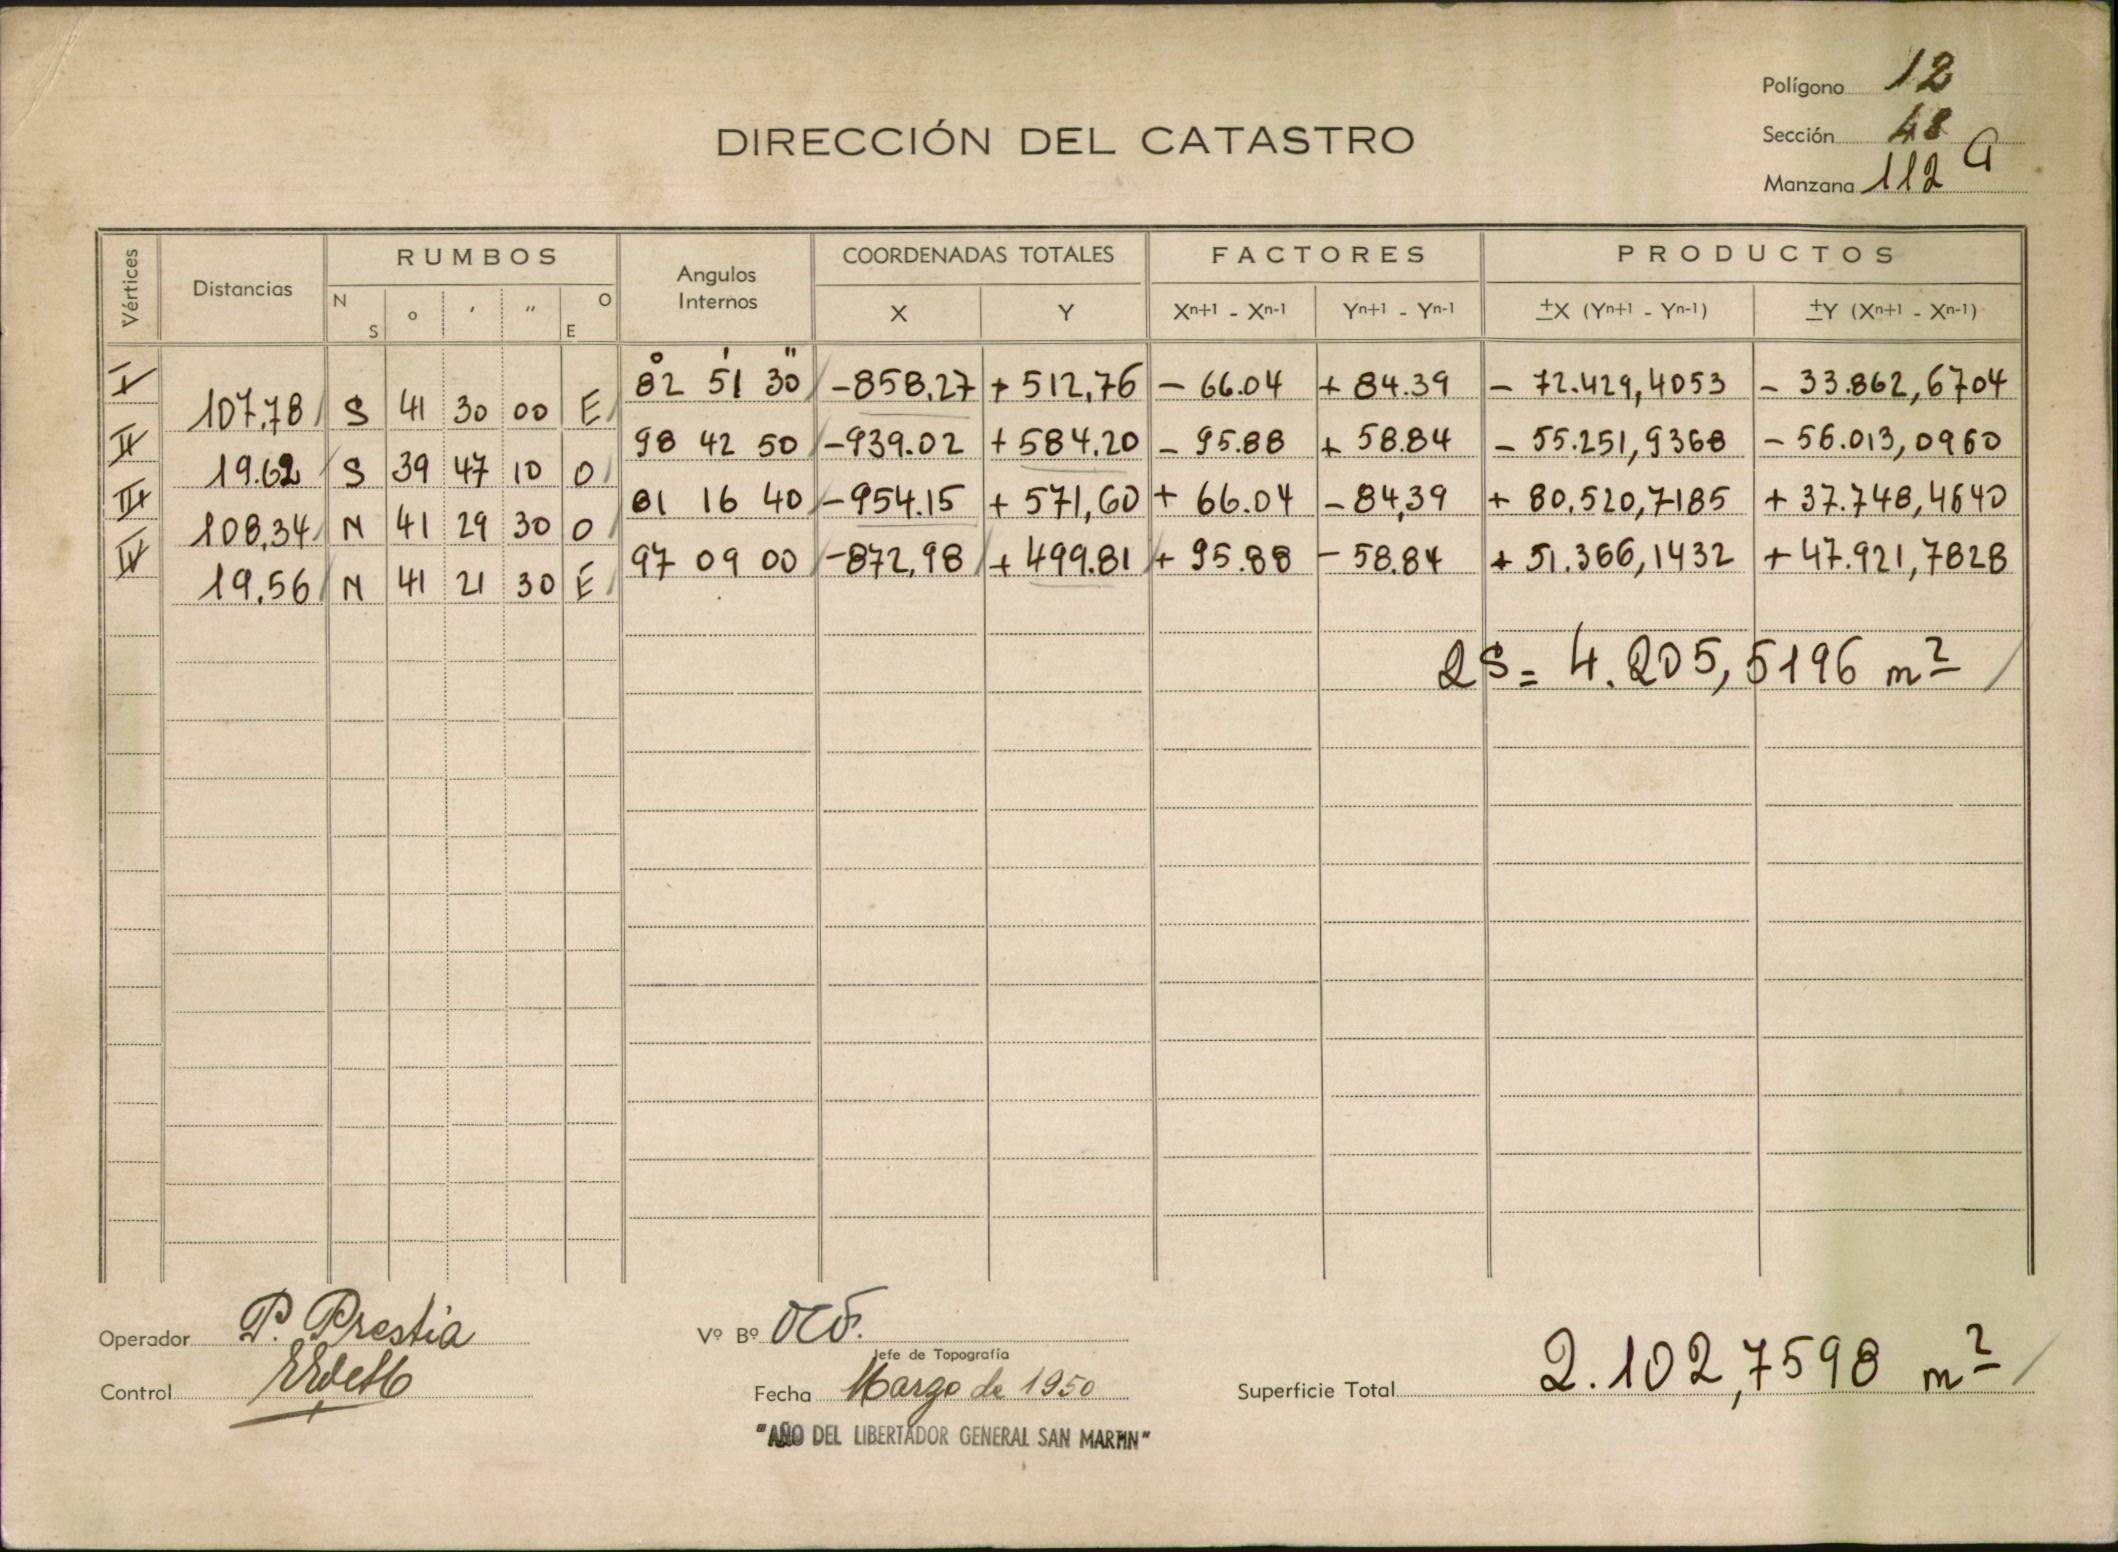 Polígono 12
DIRECCIÓN DEL CATASTRO
Sección 48
Manzana 112 G
Vértices Distancias RUMBOS Angulos Internos COORDENADAS TOTALES FACTORES PRODUCTOS
N S ° ′ ″ O E X Y Xn+1 - Xn-1 Yn+1 - Yn-1 ±X (Yn+1 - Yn-1) ±Y (Xn+1 - Xn-1)
° ' "
I 82 51 30 -858,27 + 512,76 - 66.04 + 84.39 - 72.429,4053 - 33.862,6704
107,78 S 41 30 00 E
II 98 42 50 -939.02 + 584,20 - 95.88 + 58.84 - 55.251,9368 - 56.013,0960
19.62 S 39 47 10 O
III 81 16 40 -954.15 + 571,60 + 66.04 - 84,39 + 80.520,7185 + 37.748,4640
108,34 N 41 29 30 O
IV 97 09 00 -872,98 + 499.81 + 95.88 - 58.84 + 51.366,1432 + 47.921,7828
19,56 N 41 21 30 E
2S = 4.205,5196 m²
Operador P. Prestia
Vº Bº
Jefe de Topografía
Control
Fecha Marzo de 1950
Superficie Total 2.102,7598 m²
"AÑO DEL LIBERTADOR GENERAL SAN MARTIN"